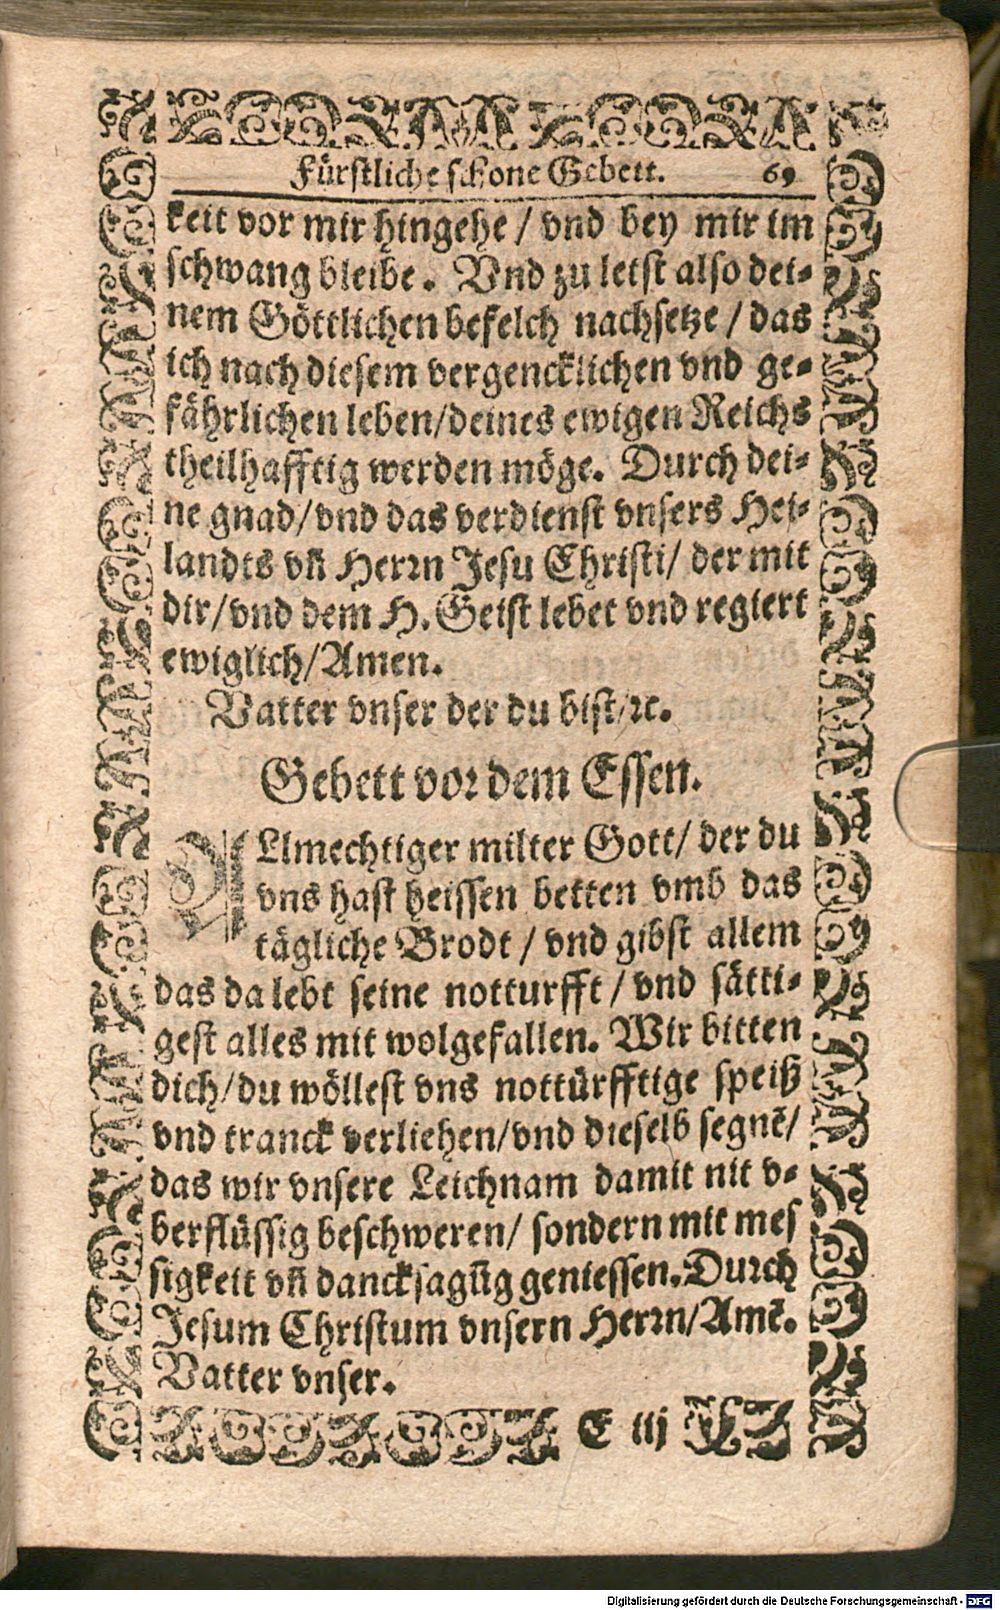 Fürstliche schone Gebett. 69
keit vor mir hingehe / vnd bey mir im
schwang bleibe. Vnd zu letst also dei-
nem Göttlichen befelch nachsetze / das
ich nach diesem vergencklichen vnd ge-
fährlichen leben/deines ewigen Reichs
theilhafftig werden möge. Durch dei-
ne gnad/vnd das verdienst vnsers Hei-
landts vñ Herrn Jesu Christi/ der mit
dir/vnd dem H. Geist lebet vnd regiert
ewiglich/Amen.
Vatter vnser der du bist/ꝛc.
Gebett vor dem Essen.
ALlmechtiger milter Gott/ der du
vns hast heissen betten vmb das
tägliche Brodt / vnd gibst allem
das da lebt seine notturfft / vnd sätti-
gest alles mit wolgefallen. Wir bitten
dich/du wöllest vns nottürfftige speiß
vnd tranck verliehen/vnd dieselb segnē/
das wir vnsere Leichnam damit nit v-
berflüssig beschweren/ sondern mit mes
sigkeit vñ dancksagũg geniessen. Durch
Jesum Christum vnsern Herrn/Amē.
Vatter vnser.
E iij
Digitalisierung gefördert durch die Deutsche Forschungsgemeinschaft - DFG